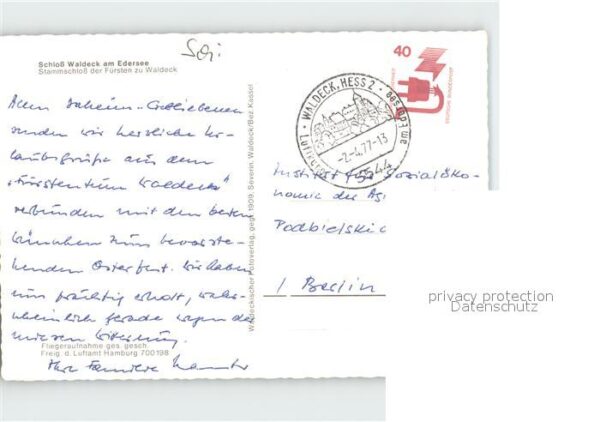 Schloß Waldeck am Edersee
Stammschloß der Fürsten zu Waldeck
Allen daheim-Gebliebenen
senden wir herzliche Ur-
laubsgrüße aus dem
"Fürstentum Waldeck"
verbunden mit den besten
Wünschen zum bevorste-
henden Osterfest. Wir haben
uns prächtig erholt, wahr-
scheinlich gerade wegen der
miesen Witterung.
Fliegeraufnahme ges. gesch.
Freig. d. Luftamt Hamburg 700198
Ihre Familie
Waldeckischer Fotoverlag, gegr. 1909, Severin, Waldeck/Bez. Kassel
WALDECK, HESS 2
am Edersee
Luftkurort
-2.-4.77-13
3544
40
DEUTSCHE BUNDESPOST
Institut für Sozialöko-
nomie der
Podbielskia
1 Berlin
privacy protection
Datenschutz